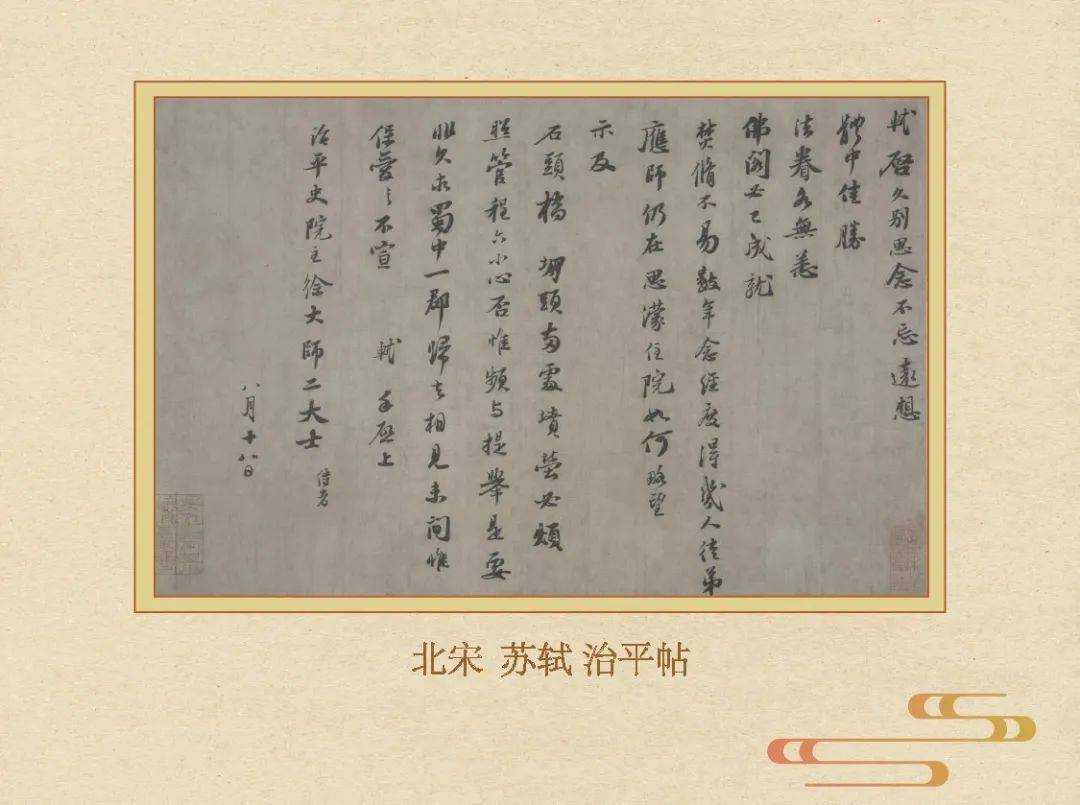 軾啓久别思念不忘遠想
體中佳勝
法眷各無恙
佛閣必已成就
焚脩不易數年念經度得幾人徒弟
應師仍在思濛住院如何略望
示及
石頭橋堋頭兩處墳塋必煩
照管程六小心否惟頻與提舉是要
非久求蜀中一郡歸去相見未間惟
保愛之不宣 軾手啓上
治平史院主徐大師二大士 侍者
八月十八日
北宋 苏轼 治平帖